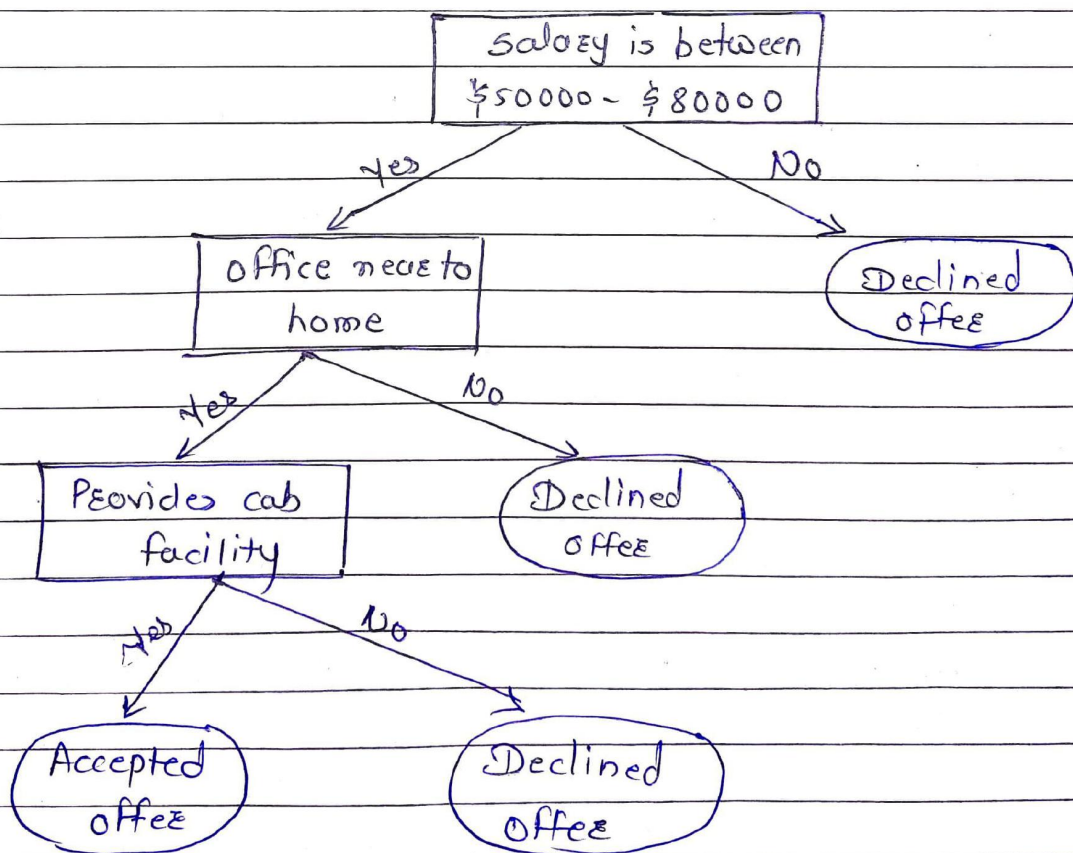 Salary is between
$50000 - $80000
Yes
No
office near to
home
Declined
offer
Yes
No
Provides cab
facility
Declined
offer
Yes
No
Accepted
offer
Declined
offer